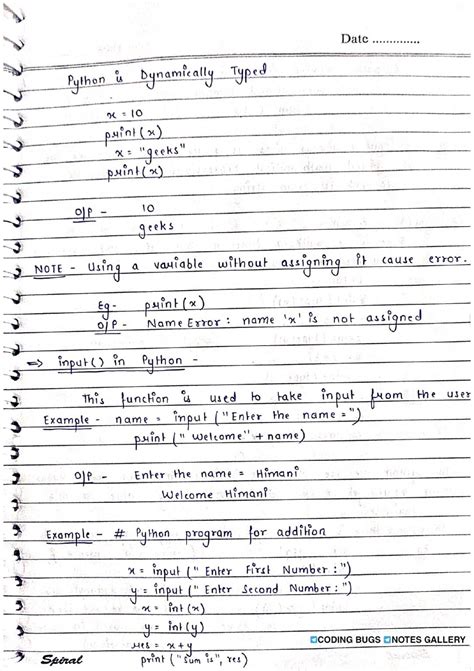 Date ..............
Python is Dynamically Typed
x = 10
print(x)
x = "geeks"
print(x)
O/P - 10
geeks
NOTE - Using a variable without assigning it cause error.
Eg- print(x)
O/P - Name Error : name 'x' is not assigned
⇒ input() in Python -
This function is used to take input from the user
Example - name = input ("Enter the name =")
print (" Welcome" + name)
O/P - Enter the name = Himani
Welcome Himani
Example - # Python program for addition
x = input (" Enter First Number :")
y = input (" Enter Second Number :")
x = int(x)
y = int(y)
res = x+y
print ("Sum is", res)
Spiral
CODING BUGS NOTES GALLERY